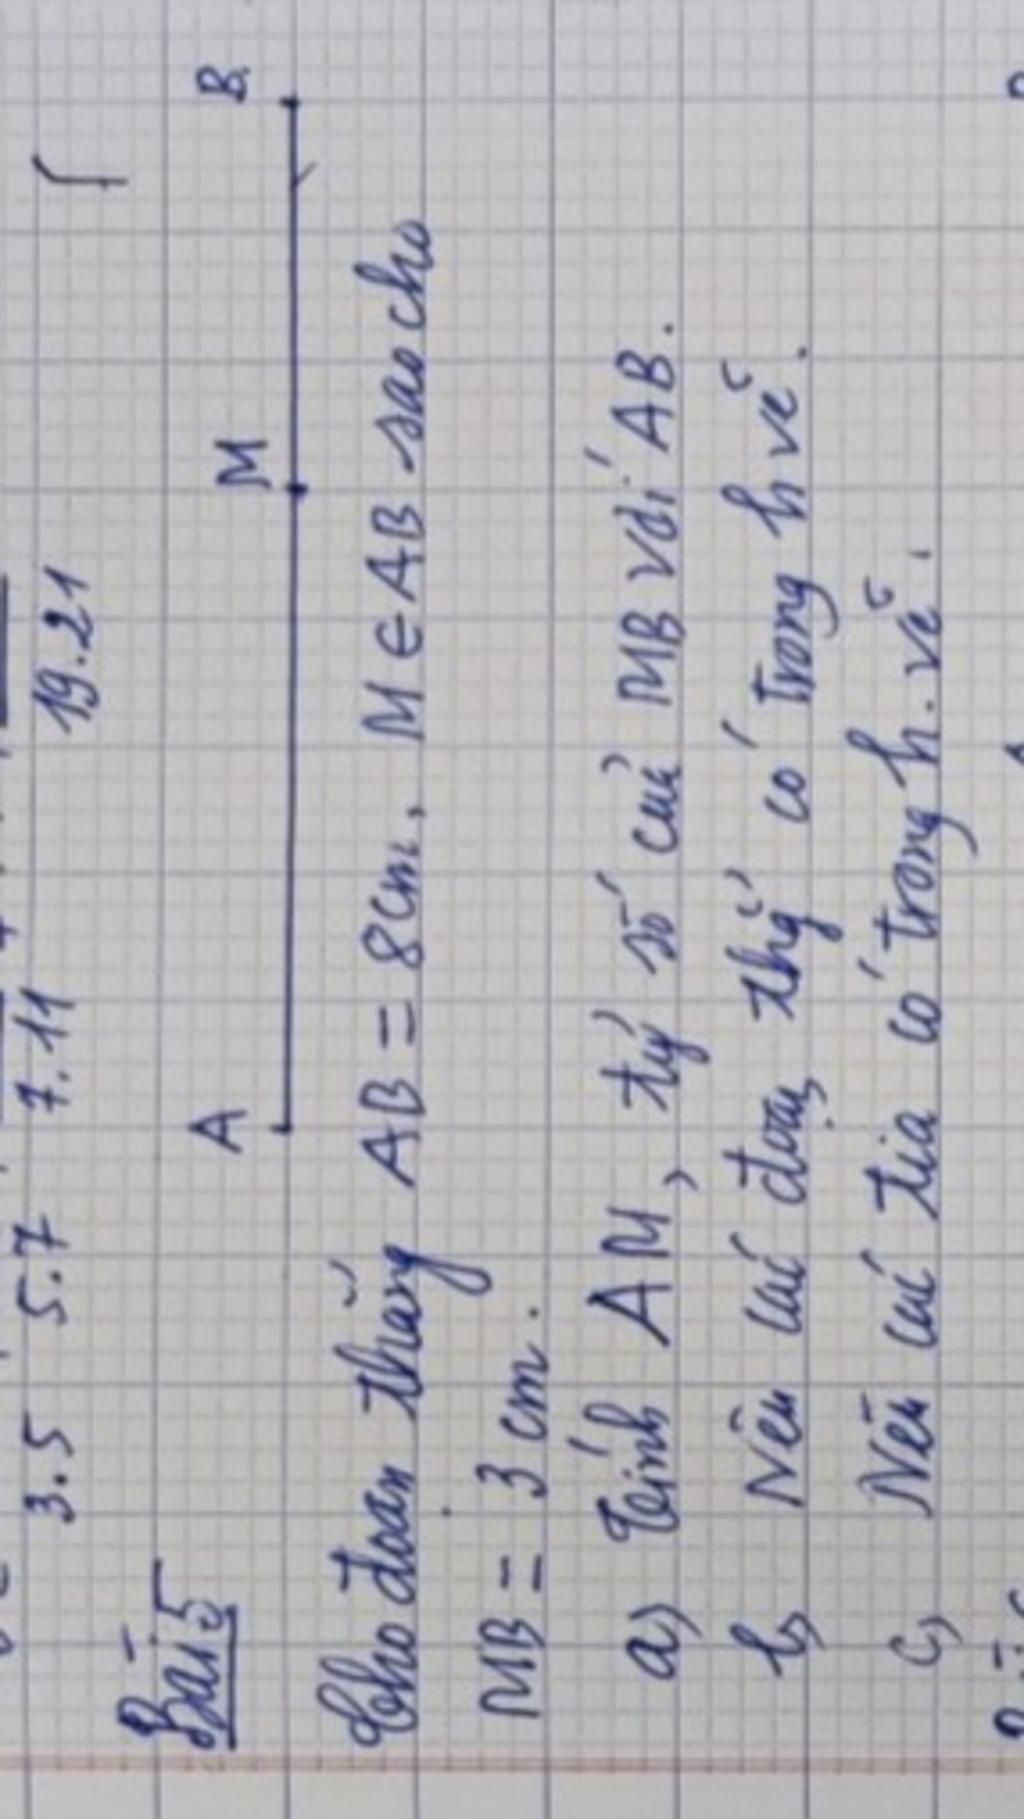 3.5 5.7 7.11 19.21
Bài 5
A M B
Cho đoạn thẳng AB = 8cm, M ∈ AB sao cho
MB = 3 cm.
a) Tính AM, tỷ số của MB với AB.
b) Nêu các đoạn thẳng có trong h vẽ.
c) Nêu các tia có trong h.vẽ.